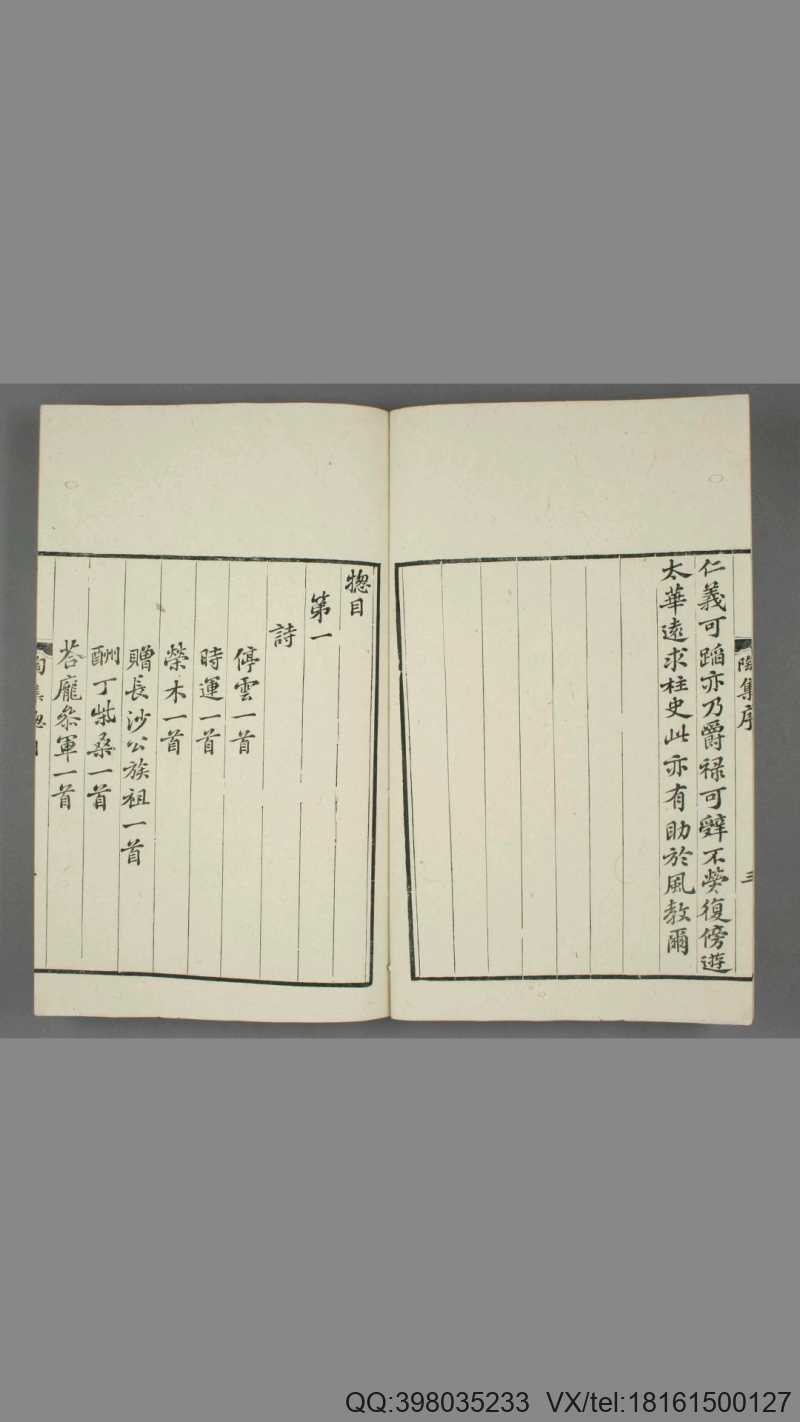 陶集序
三
仁義可蹈亦乃爵祿可辭不勞復傍遊
太華遠求柱史此亦有助於風教爾
揔目
第一
詩
停雲一首
時運一首
榮木一首
贈長沙公族祖一首
酬丁柴桑一首
荅龐叅軍一首
QQ:398035233 VX/tel:18161500127